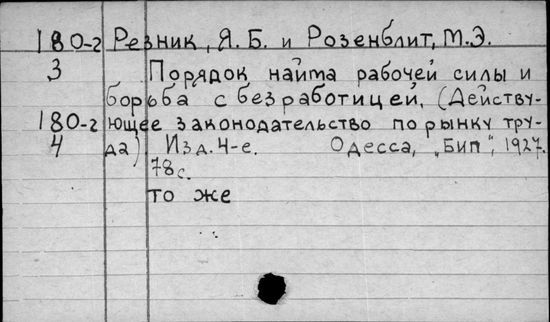 180-г Резник, Я. Б. и Розенблит, М.Э.
3 Порядок найма рабочей силы и
борьба с безработицей. (Действу-
180-г ющее законодательство по рынку тру-
4 да) Изд. 4-е. Одесса, „Бип", 1927.
78 с.
то же